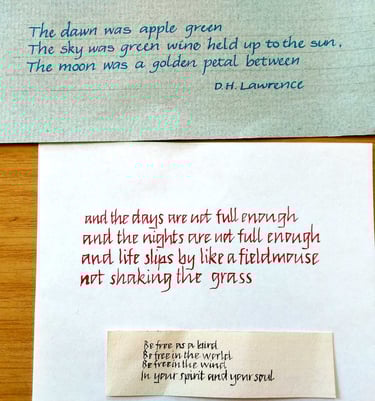 The dawn was apple green
The sky was green wine held up to the sun,
The moon was a golden petal between
D.H. Lawrence
and the days are not full enough
and the nights are not full enough
and life slips by like a fieldmouse
not shaking the grass
Be free as a bird
Be free in the world
Be free in the wind
In your spirit and your soul